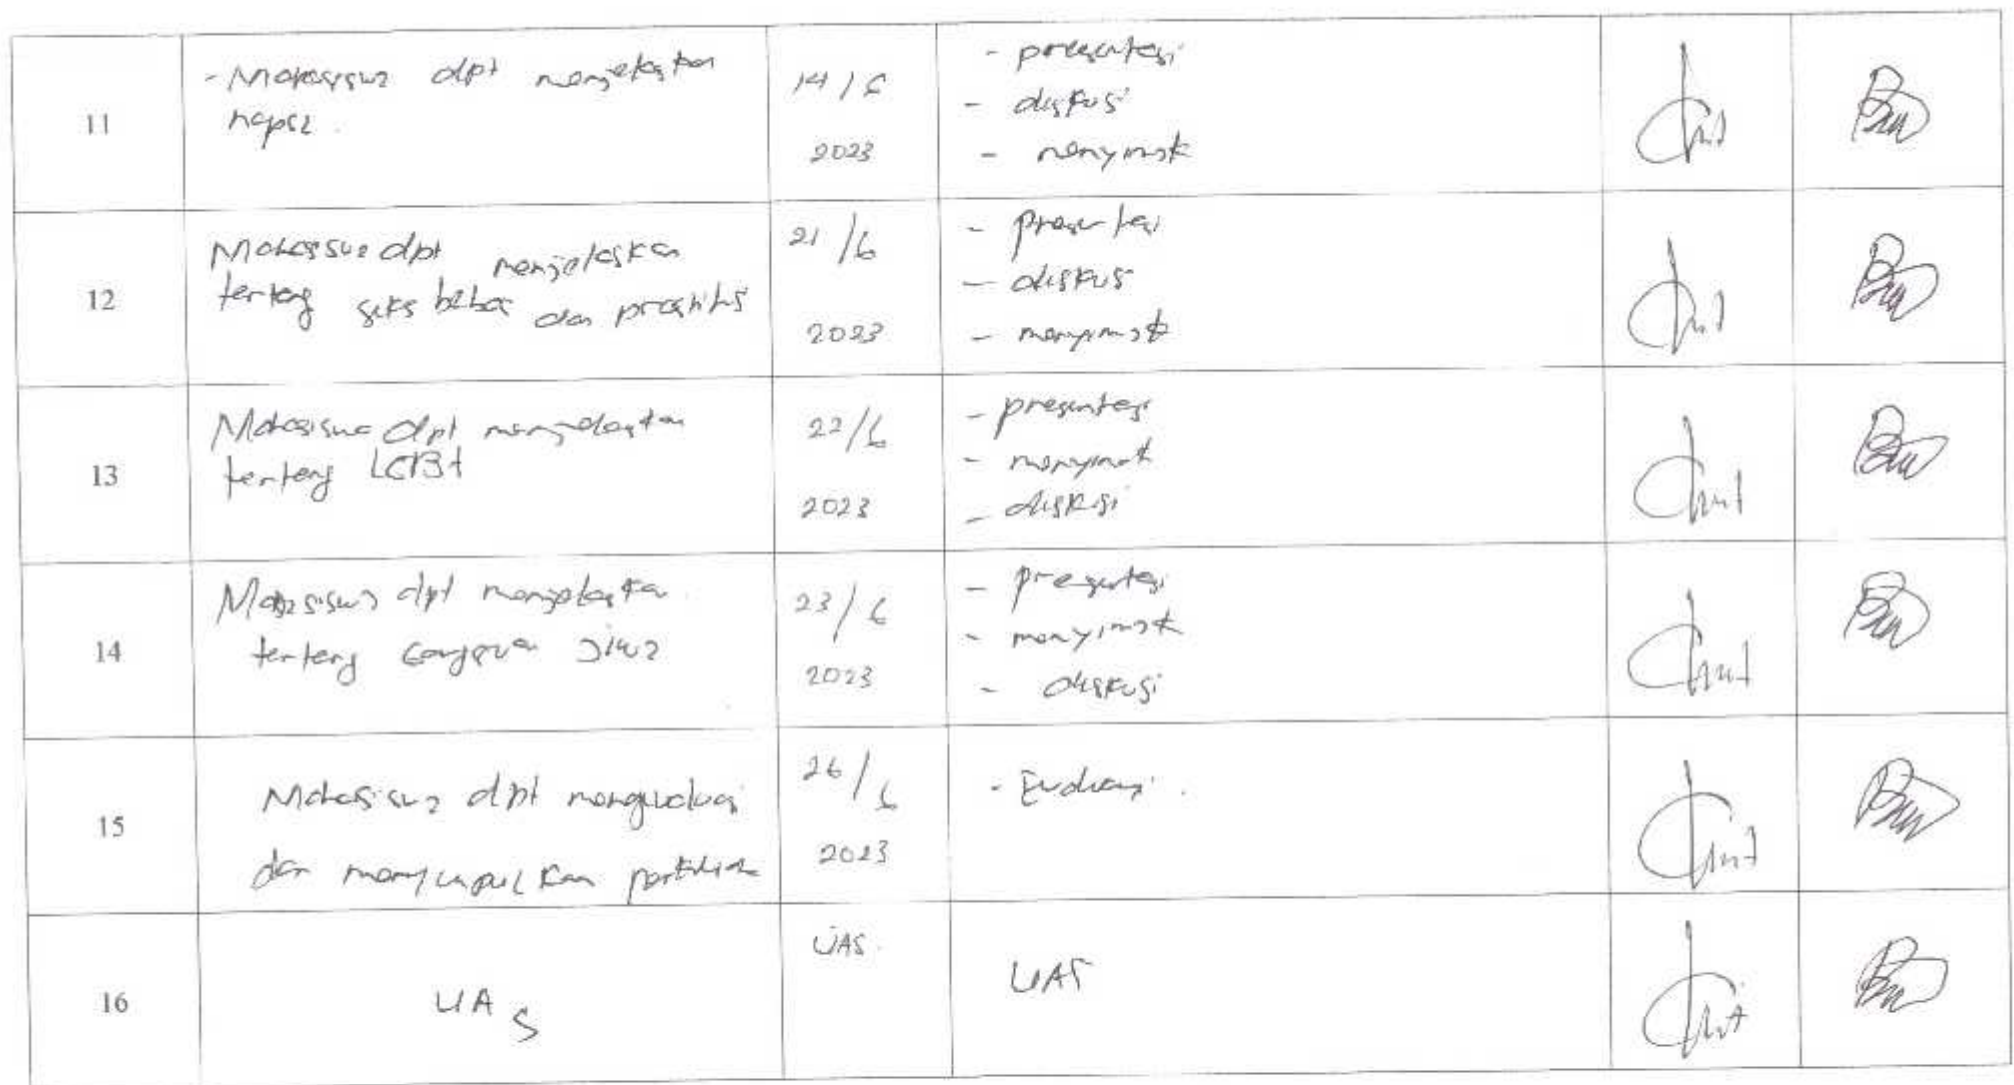 11
- Mahasiswa dpt menjelaskan
napza.
14 / 6
2023
- presentasi
- diskusi
- menyimak
12
Mahasiswa dpt menjelaskan
tentang seks bebas dan prostitusi
21 / 6
2023
- presentasi
- diskusi
- menyimak
13
Mahasiswa dpt menjelaskan
tentang LGBT
22/6
2023
- presentasi
- menyimak
- diskusi
14
Mahasiswa dpt menjelaskan
tentang gangguan jiwa
23/6
2023
- presentasi
- menyimak
- diskusi
15
Mahasiswa dpt mengevaluasi
dan menyimpulkan perkuliahan
26/6
2023
- Evaluasi.
16
UAS
UAS.
UAS